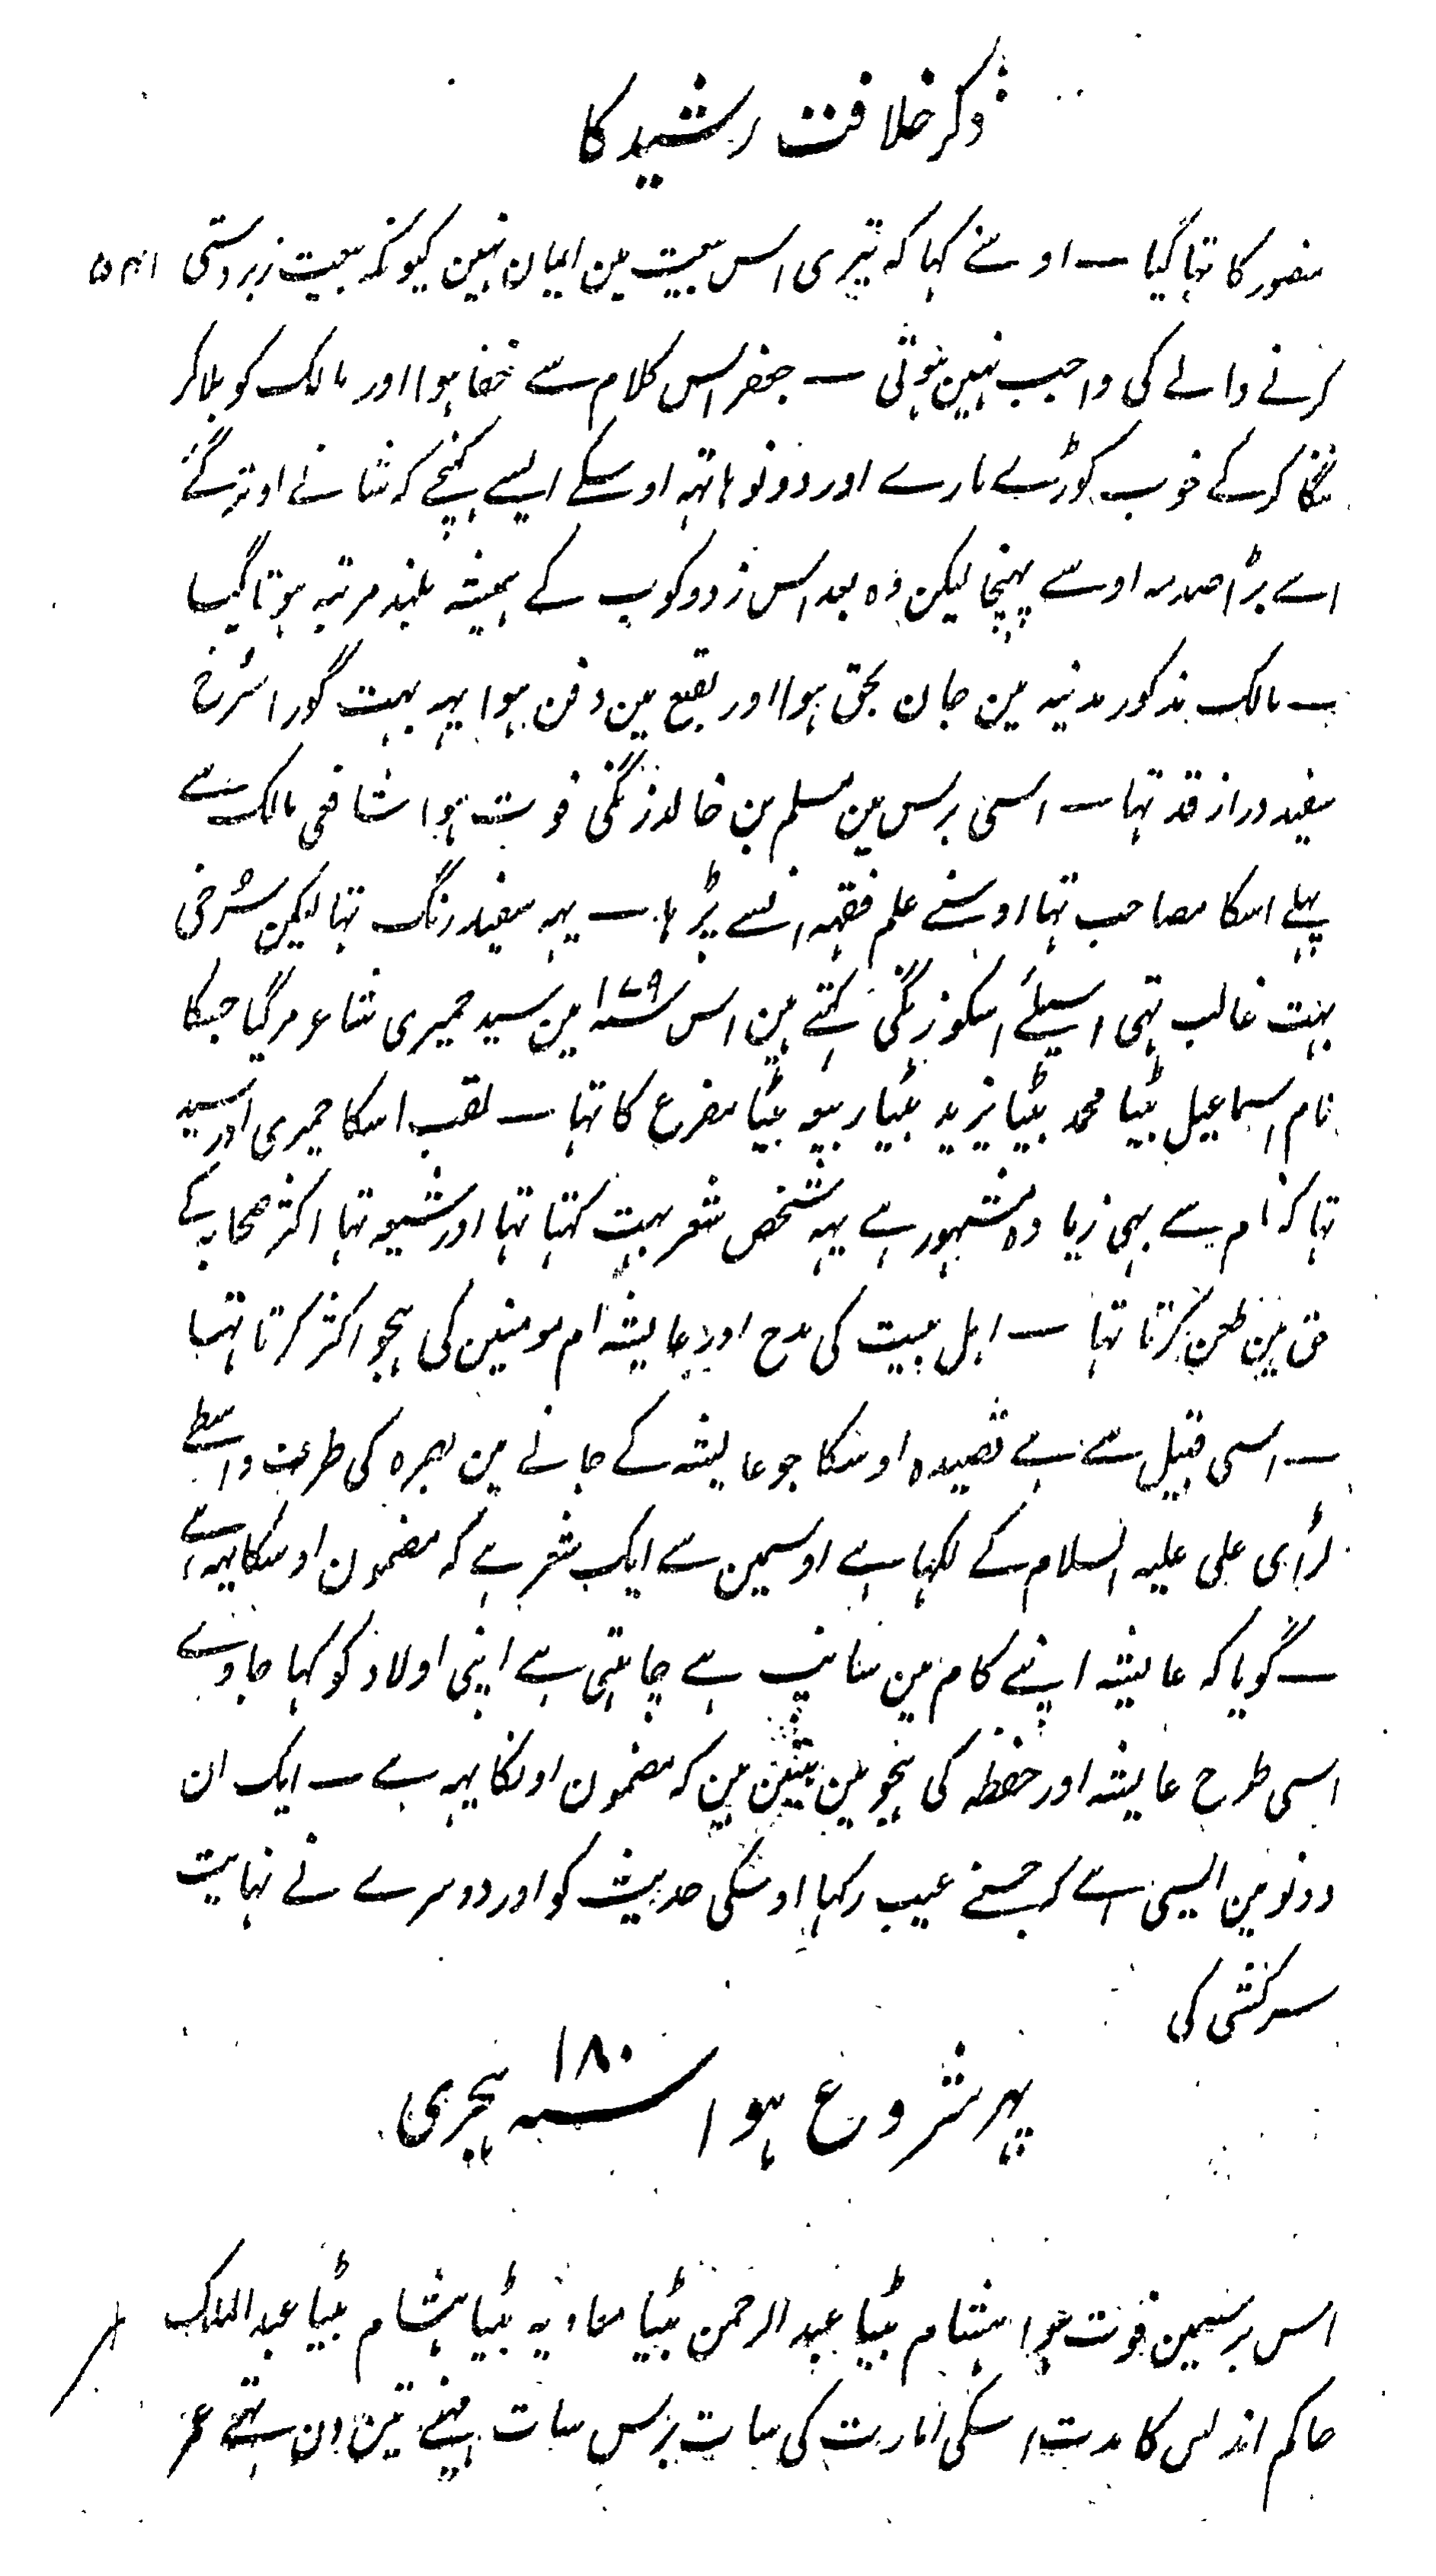 ذکر خلافت رشید کا
منصور کا تہا گیا — اوسنے کہا کہ تیری اس بیعت مین ایمان نہین کیونکہ بیعت زبردستی ۵۴۱
کرنے والے کی واجب نہین ہوتی — جعفر اس کلام سے خفا ہوا اور مالک کو بلا کر
ننگا کر کے خوب کوڑے مارے اور دونو ہاتہہ اوسکے ایسے کہنچے کہ شانے اوتر گئے
اسے بڑا صدمہ اوسے پہنچا لیکن وہ بعد اس زدوکوب کے ہمیشہ بلند مرتبہ ہوتا گیا
— مالک مذکور مدنیہ مین جان بحق ہوا اور بقیع مین دفن ہوا یہہ بہت گورا سُرخ
سفید دراز قد تہا — اسی برس مین مسلم بن خالد زنگی فوت ہوا شافعی مالک سے
پہلے اسکا مصاحب تہا اوسنے علم فقہہ انسے پڑہا — یہہ سفید رنگ تہا لیکن سُرخی
بہت غالب تہی اسیلئے اسکو زنگی کہتے ہین اس سنہ ۱۷۹ مین سید حمیری شاعر مر گیا جسکا
نام اسماعیل بیٹا محمد بیٹا یزید بیٹا ربیعہ بیٹا مفرع کا تہا — لقب اسکا حمیری اور سید
تہا کہ نام سے بہی زیادہ مشہور ہے یہہ شخص شعر بہت کہتا تہا اور شیعہ تہا اکثر صحابہ کے
حق مین طعن کرتا تہا — اہل بیت کی مدح اور عایشہ ام مومنین کی ہجو اکثر کرتا تہا
— اسی قبیل سے ہے قصیدہ اوسکا جو عایشہ کے جانے مین بصرہ کی طرف واسطے
لڑای علی علیہ السلام کے لکہا ہے اوسمین سے ایک شعر ہے کہ مضمون اوسکا یہہ ہے
— گویا کہ عایشہ اپنے کام مین سانپ ہے چاہتی ہے اپنی اولاد کو کہا جاوے
اسی طرح عایشہ اور حفظہ کی ہجو مین بیتین ہین کہ مضمون اونکا یہہ ہے — ایک ان
دونو مین ایسی ہے کہ جسنے عیب رکہا اوسکی حدیث کو اور دوسرے نے نہایت
سرکشی کی
پہر شروع ہوا سنہ ۱۸۰ ہجری
اس برسمین فوت ہوا ہشام بیٹا عبد الرحمن بیٹا معاویہ بیٹا ہشام بیٹا عبد الملک
حاکم اندلس کا مدت اسکی امارت کی سات برس سات مہنے تین دن تہے عمر